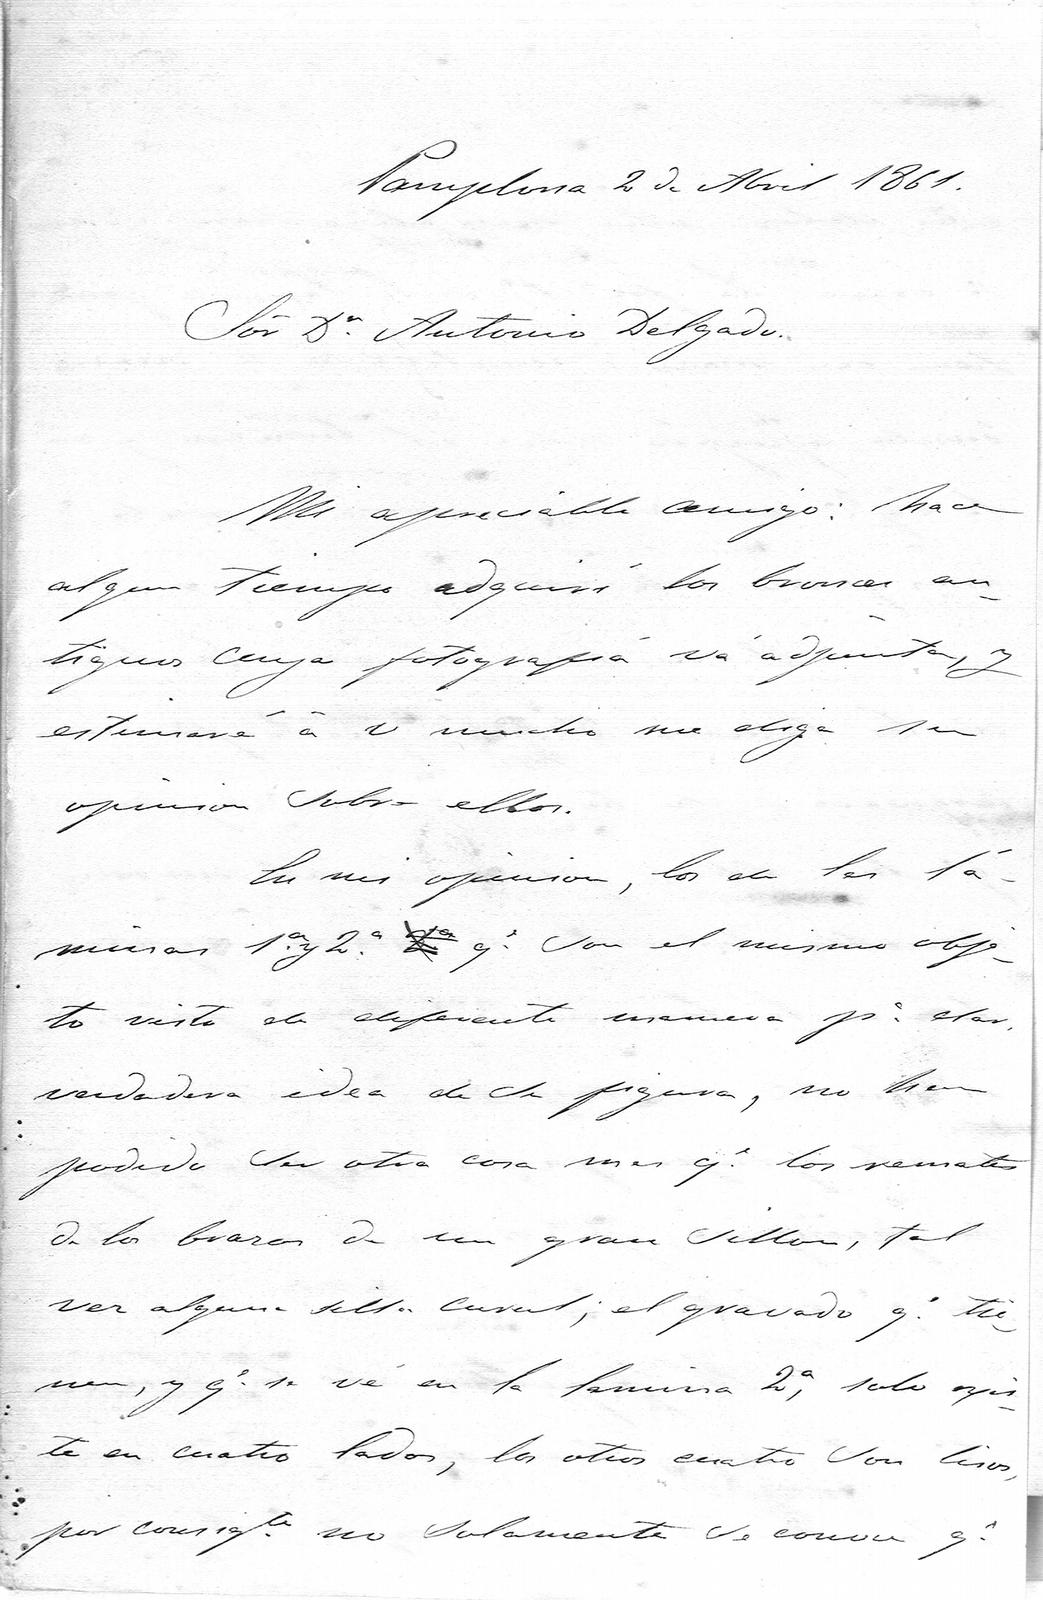 Pamplona 2 de Abril 1861.
Sór Dn. Antonio Delgado.
Mi apreciable amigo: hace
algun tiempo adquirí los bronces an-
tiguos cuya fotografiá vá adjunta, y
estimaré á V mucho me diga su
opinion sobre ellos.
En mi opinion, los de las lá-
minas 1ª. y 2.ª q.e son el mismo obje-
to visto de diferente manera p.ª dar
verdadera idea de su figura, no han
podido ser otra cosa mas q.e los remates
de los brazos de un gran sillon, tal
vez alguna silla curul; el gravado q.e tie-
nen, y q.e se vé en la lamina 2ª, solo exis-
te en cuatro lados, los otros cuatro son lisos,
por consigte. no solamente se conoce q.e